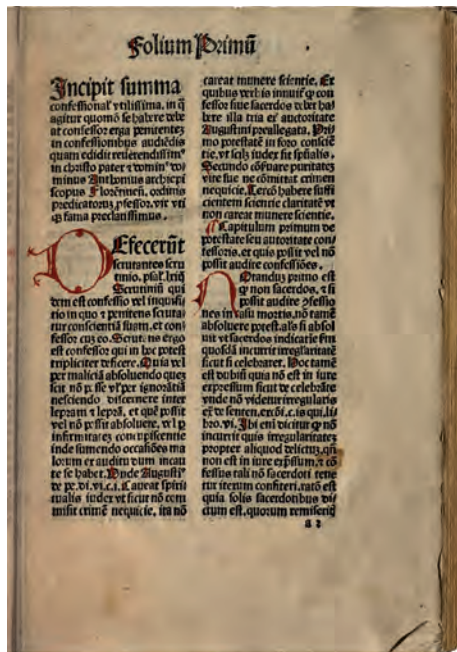 Folium Primũ
Incipit summa
confessionał vtilissima, in q̃
agitur quomõ se habere debe
at confessor erga penitentez
in confessionibus audiẽdis
quam edidit reuerendissimꝰ
in christo pater ⁊ dominꝰ dom
minus Anthonius archiepi
scopus Florẽtinꝰ, ordinis
predicatorum, ꝓfessor. vir vti
q̃ fama preclarissimus.
DEfecerũt
scrutantes scru
tinio. psał. lxiij
Scrutiniũ qui
dem est confessio vel inquisi
tio in quo ⁊ penitens scruta
tur conscientiã suam, et con
fessor cuz eo. Scrutãtes ergo
est confessor qui in hoc potest
tripliciter deficere. Quia vel
per maliciã absoluendo quez
scit nõ posse vł per ignorãtiã
nesciendo discernere inter
lepram ⁊ leprã, et quẽ possit
vel nõ possit absoluere, vel ꝑ
infirmitatez concupiscentie
inde sumendo occasiões ma
lorum ex auditu dum incau
te se habet. Unde Augustiꝰ
de pe. di. vi. c. i. Caueat spiri
tualis iudex vt sicut nõ com
misit crimẽ nequicie, ita nõ
careat munere scientie. Ex
quibus verbis innuit̃ ꝙ con
fessor siue sacerdos debet ha
bere illa tria ex auctoritate
Augustini preallegata. Pri
mo potestatẽ in foro consciẽ
tie, vt scilz iudex sit spũalis.
Secundo cõseruare puritatez
vite sue ne cõmittat crimen
nequicie. Tercõ habere suffi
cientem scientie claritatẽ vt
non careat munere scientie.
Capitulum primum de
potestate seu autoritate con
fessoris. et quis possit vel nõ
possit audire confessiões.
Notandum primo est
ꝙ non sacerdos. ⁊ si
possit audire ꝯfessio
nes in casu mortis, nõ tamẽ
absoluere potest. als si absol
uit vt sacerdos indicatiue sm
quosdã incurrit irregl̃aritatẽ
sicut si celebraret. Hoc tamẽ
est dubiũ quia nõ est in iure
expressum sicut de celebrãte
vnde nõ videtur irregularis
ex de senten. excõi. c. is qui, li
bro. vi. Ibi eni dicitur ꝙ nõ
incurrit quis irregularitatez
propter aliquod delictuz, qñ
non est in iure exp̃ssum. ⁊ cõ
fessus tali nõ sacerdoti tene
tur iterum confiteri. ratõ est
quia solis sacerdotibus di
ctum est, quorum remiseritꝭ
a 2